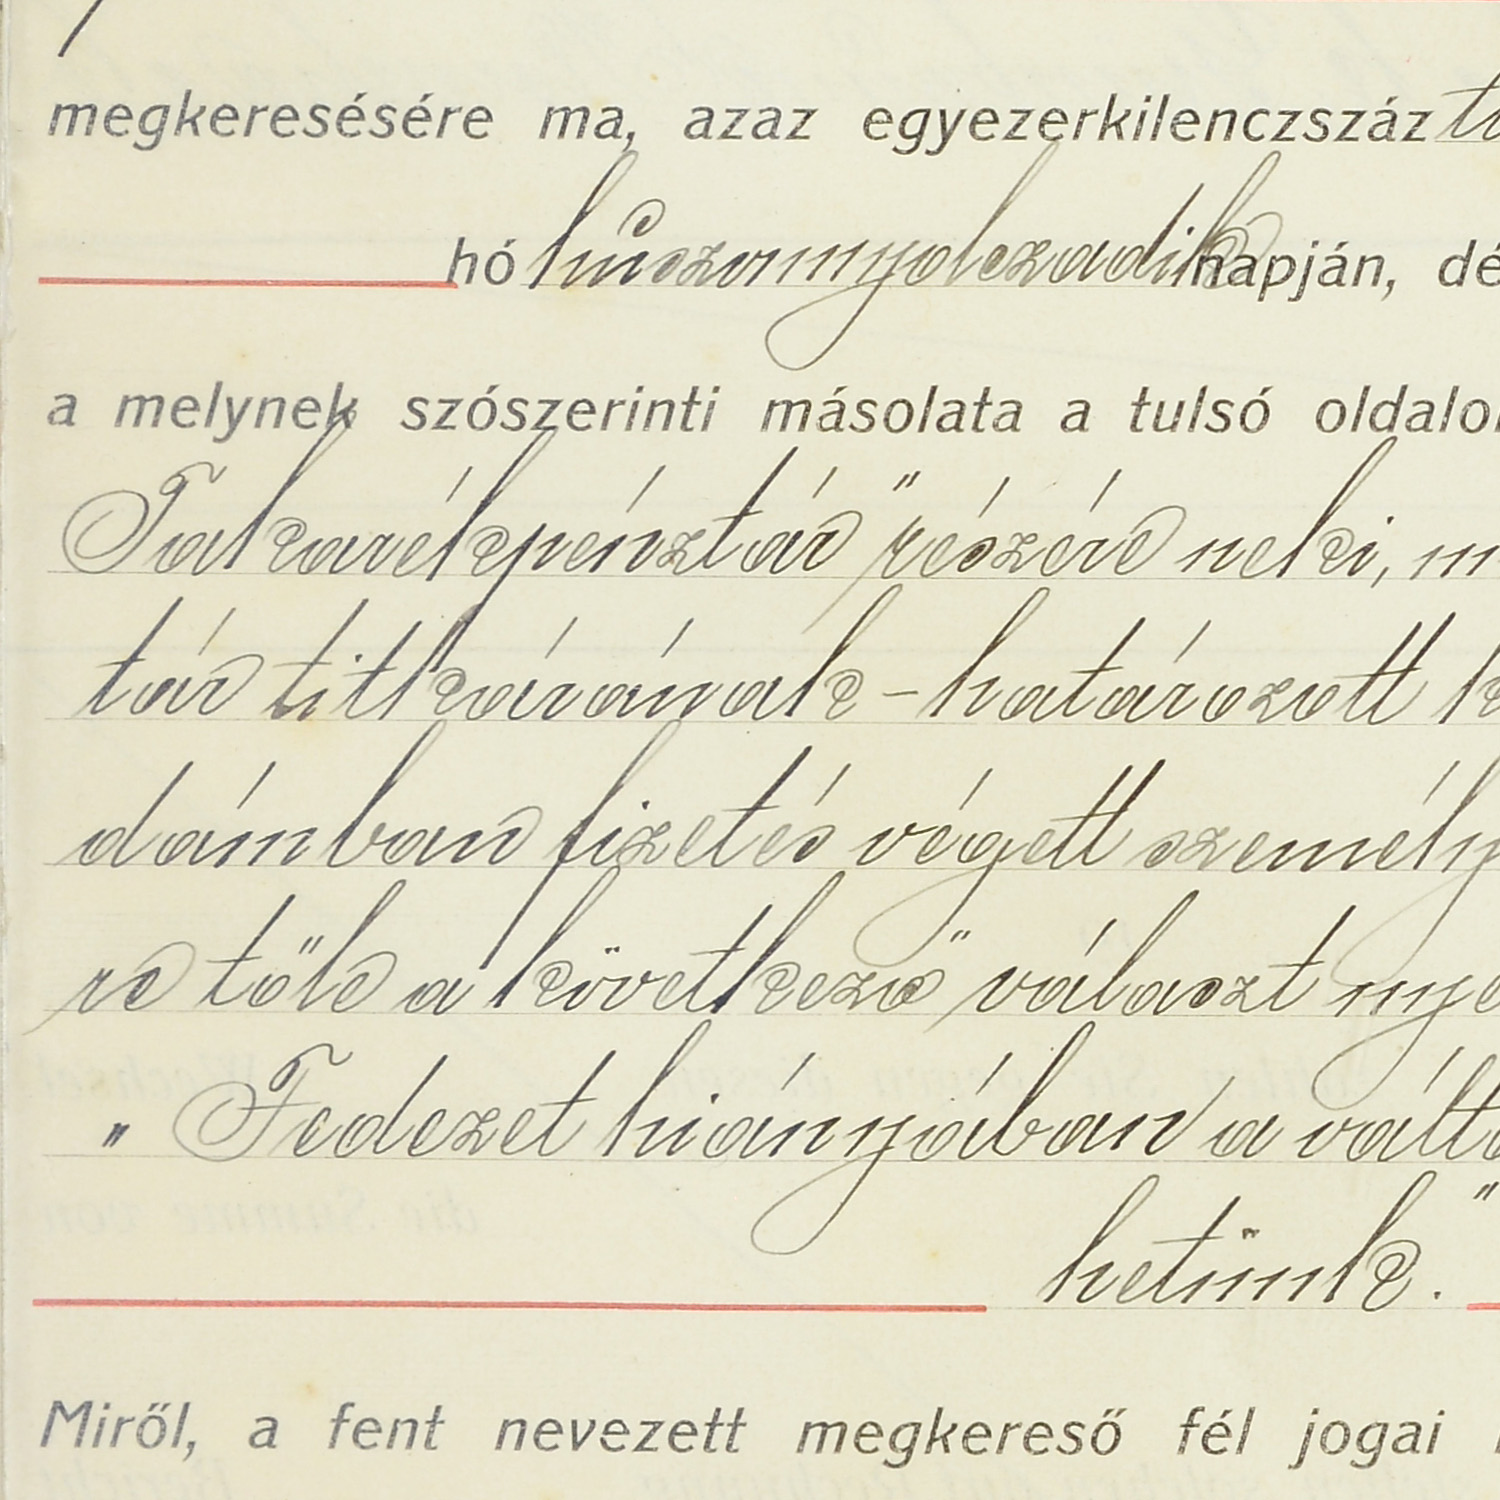 megkeresésére ma, azaz egyezerkilenczszáz
hó húszonnyolczadik napján, dé
a melynek szószerinti másolata a tulsó oldalon
Takarékpénztár" részére neki, m
tár titkárának - határozott k
dámban fizetés végett személy
re tőle a következő választ nye
"Fedezet hiányában a vált
hetünk."
Miről, a fent nevezett megkereső fél jogai